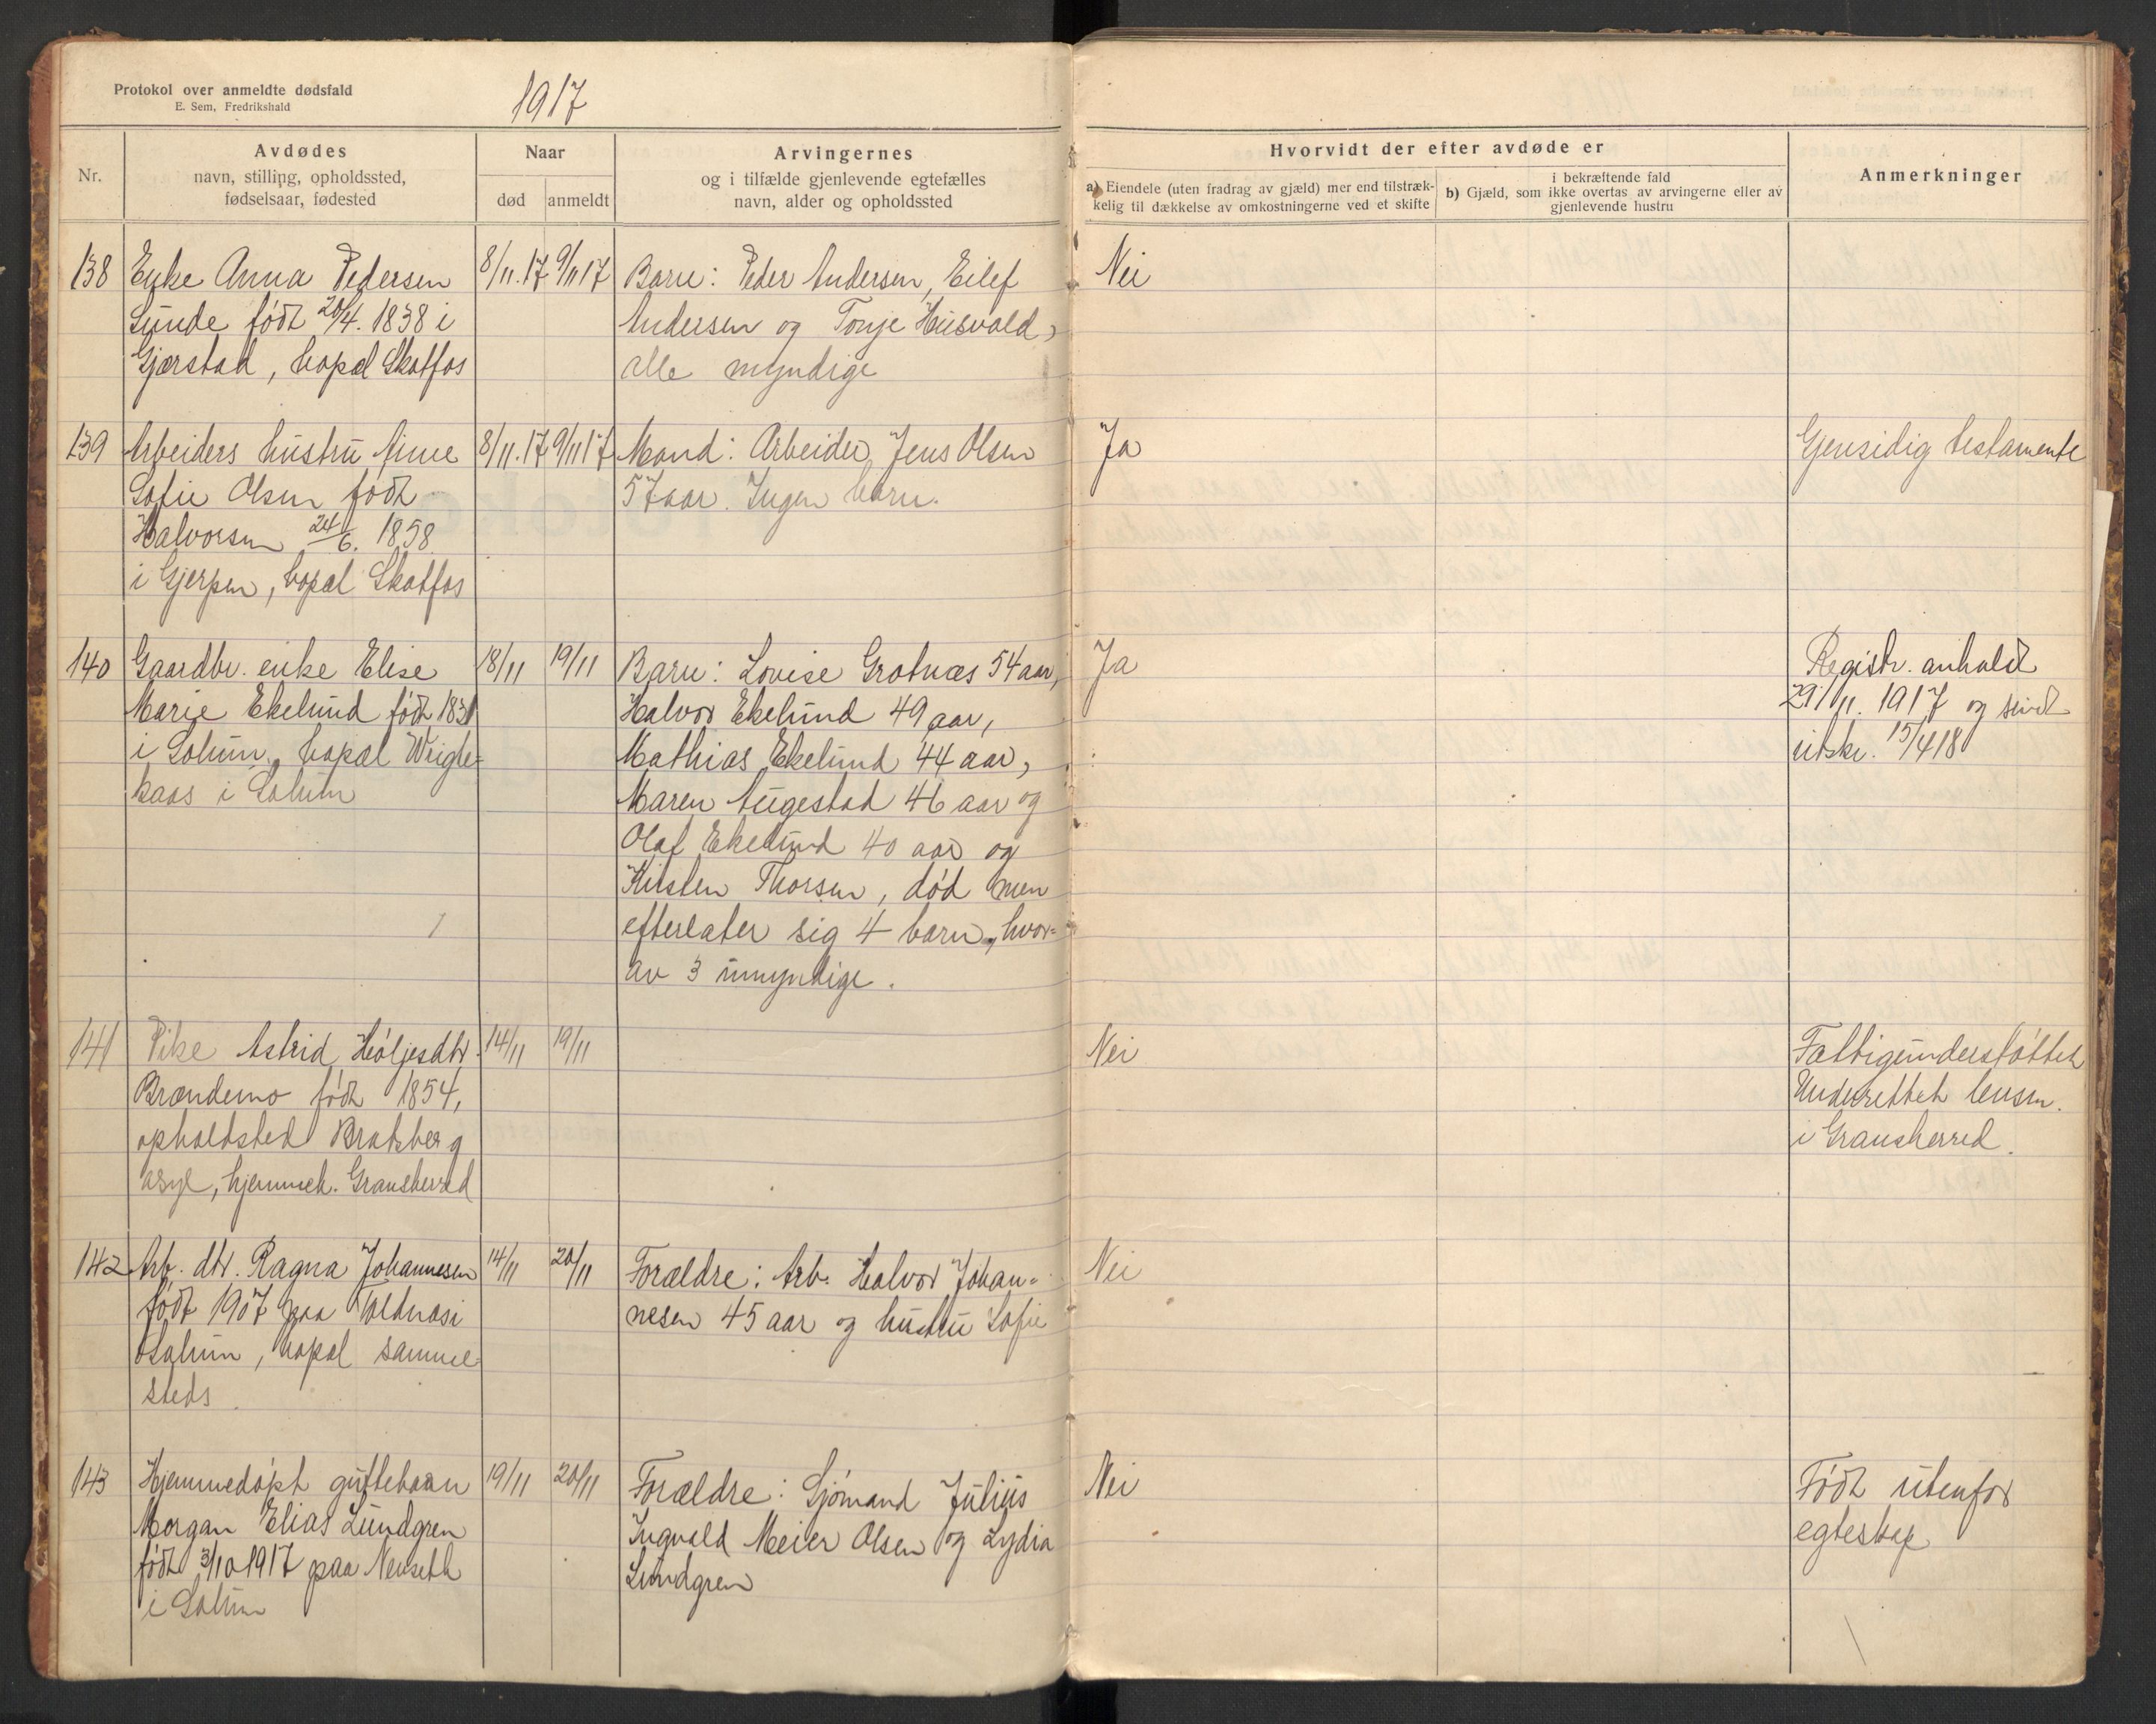 Protokol over anmeldte dødsfald
E. Sem, Fredrikshald
1917
Nr.
Avdødes
navn, stilling, opholdssted,
fødselsaar, fødested
Naar
død
anmeldt
Arvingernes
og i tilfælde gjenlevende egtefælles
navn, alder og opholdssted
Hvorvidt der efter avdøde er
a) Eiendele (uten fradrag av gjæld) mer end tilstræk-
kelig til dækkelse av omkostningerne ved et skifte
i bekræftende fald
b) Gjæld, som ikke overtas av arvingerne eller av
gjenlevende hustru
Anmerkninger
138
Enke Anna Pedersen
Lunde født 20/4. 1838 i
Gjerstad, bopæl Skotfos
8/11.17
9/11 17
Barn: Peder Andersen, Eilef
Andersen og Tonje Husvold,
alle myndige
Nei
139
Arbeiders hustru Anne
Sofie Olsen født
Halvorsen 24/6. 1858
i Gjerpen, bopæl Skotfos
8/11.17
9/11 17
Mand: Arbeider Jens Olsen
57 aar. Ingen barn.
Ja
Gjensidig testamente
140
Gaardbr. enke Elise
Marie Ekelund født 1831
i Solum, bopæl Weigle-
kaas i Solum
18/11
19/11
Barn: Lovise Grotnæs 54 aar,
Halvor Ekelund 49 aar,
Mathias Ekelund 44 aar,
Maren Augestad 46 aar og
Olaf Ekelund 40 aar og
Kirsten Thorsen, død men
efterlater sig 4 barn, hvor-
av 3 umyndige.
Ja
Registr. anholdt
29/11. 1917 og sendt
utskr. 15/4 18
141
Pike Astrid Høljesdtr.
Brændemo født 1854,
opholdsted Bratsberg
asyl, hjemmeh. Gransherred
14/11
19/11
Nei
Fattigunderstøttet
Underrettet lensm.
i Gransherred.
142
Arb. dtr. Ragna Johannesen
født 1907 paa Voldnæs i
Solum, bopæl samme-
steds.
14/11
20/11
Forældre: Arb. Halvor Johan-
nesen 45 aar og hustru Sofie
Nei
143
Hjemmedøpt guttebarn
Morgan Elias Lundgren
født 3/10 1917 paa Nenseth
i Solum
19/11
20/11
Forældre: Sjømand Julius
Ingvald Meier Olsen og Lydia
Lundgren
Nei
Født utenfor
egteskap